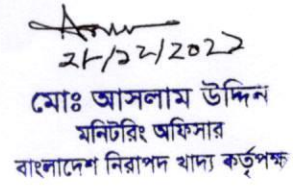 মোঃ আসলাম উদ্দিন
মনিটরিং অফিসার
বাংলাদেশ নিরাপদ খাদ্য কর্তৃপক্ষ